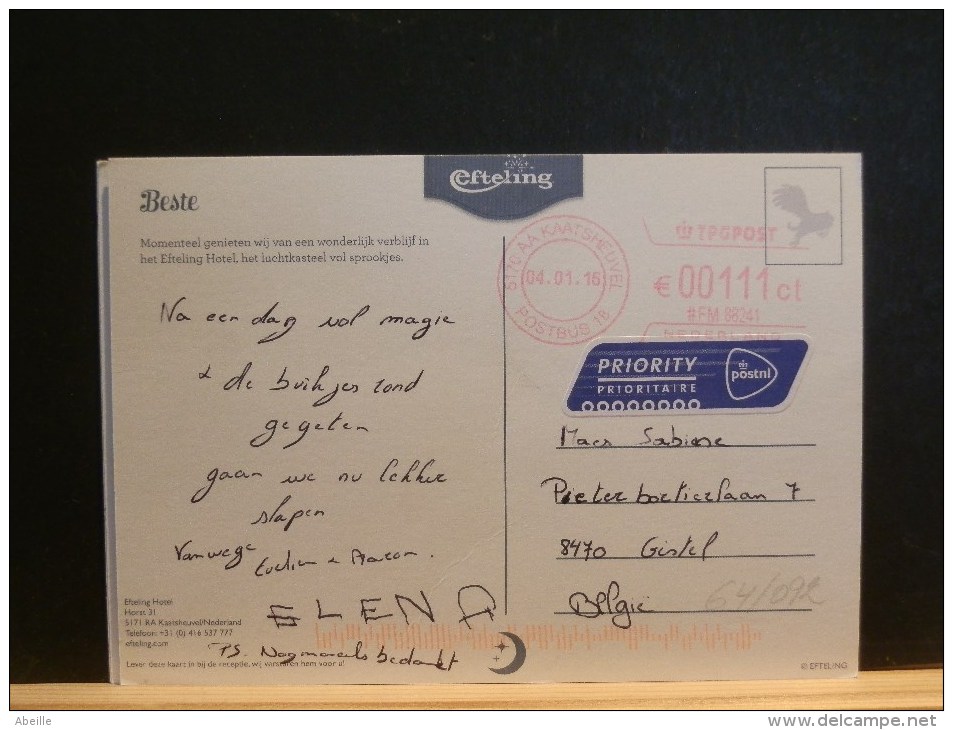 efteling
Beste
Momenteel genieten wij van een wonderlijk verblijf in
het Efteling Hotel, het luchtkasteel vol sprookjes.
Na een dag vol magie
& de buikjes rond
gegeten
gaan we nu lekker
slapen
Vanwege
ELENA
PS. Nogmaals bedankt
Efteling Hotel
Horst 31
5171 RA Kaatsheuvel/Nederland
Telefoon: +31 (0) 416 537 777
efteling.com
Lever deze kaart in bij de receptie, wij versturen hem voor u!
5170 AA KAATSHEUVEL
04.01.16
POSTBUS 18
TPGPOST
€ 00111 ct
#FM 88241
NEDERLAND
PRIORITY
PRIORITAIRE
postnl
Maes Sabiene
Pieter bortierlaan 7
8470 Gistel
België
64/092
© EFTELING
Abeille
www.delcampe.net